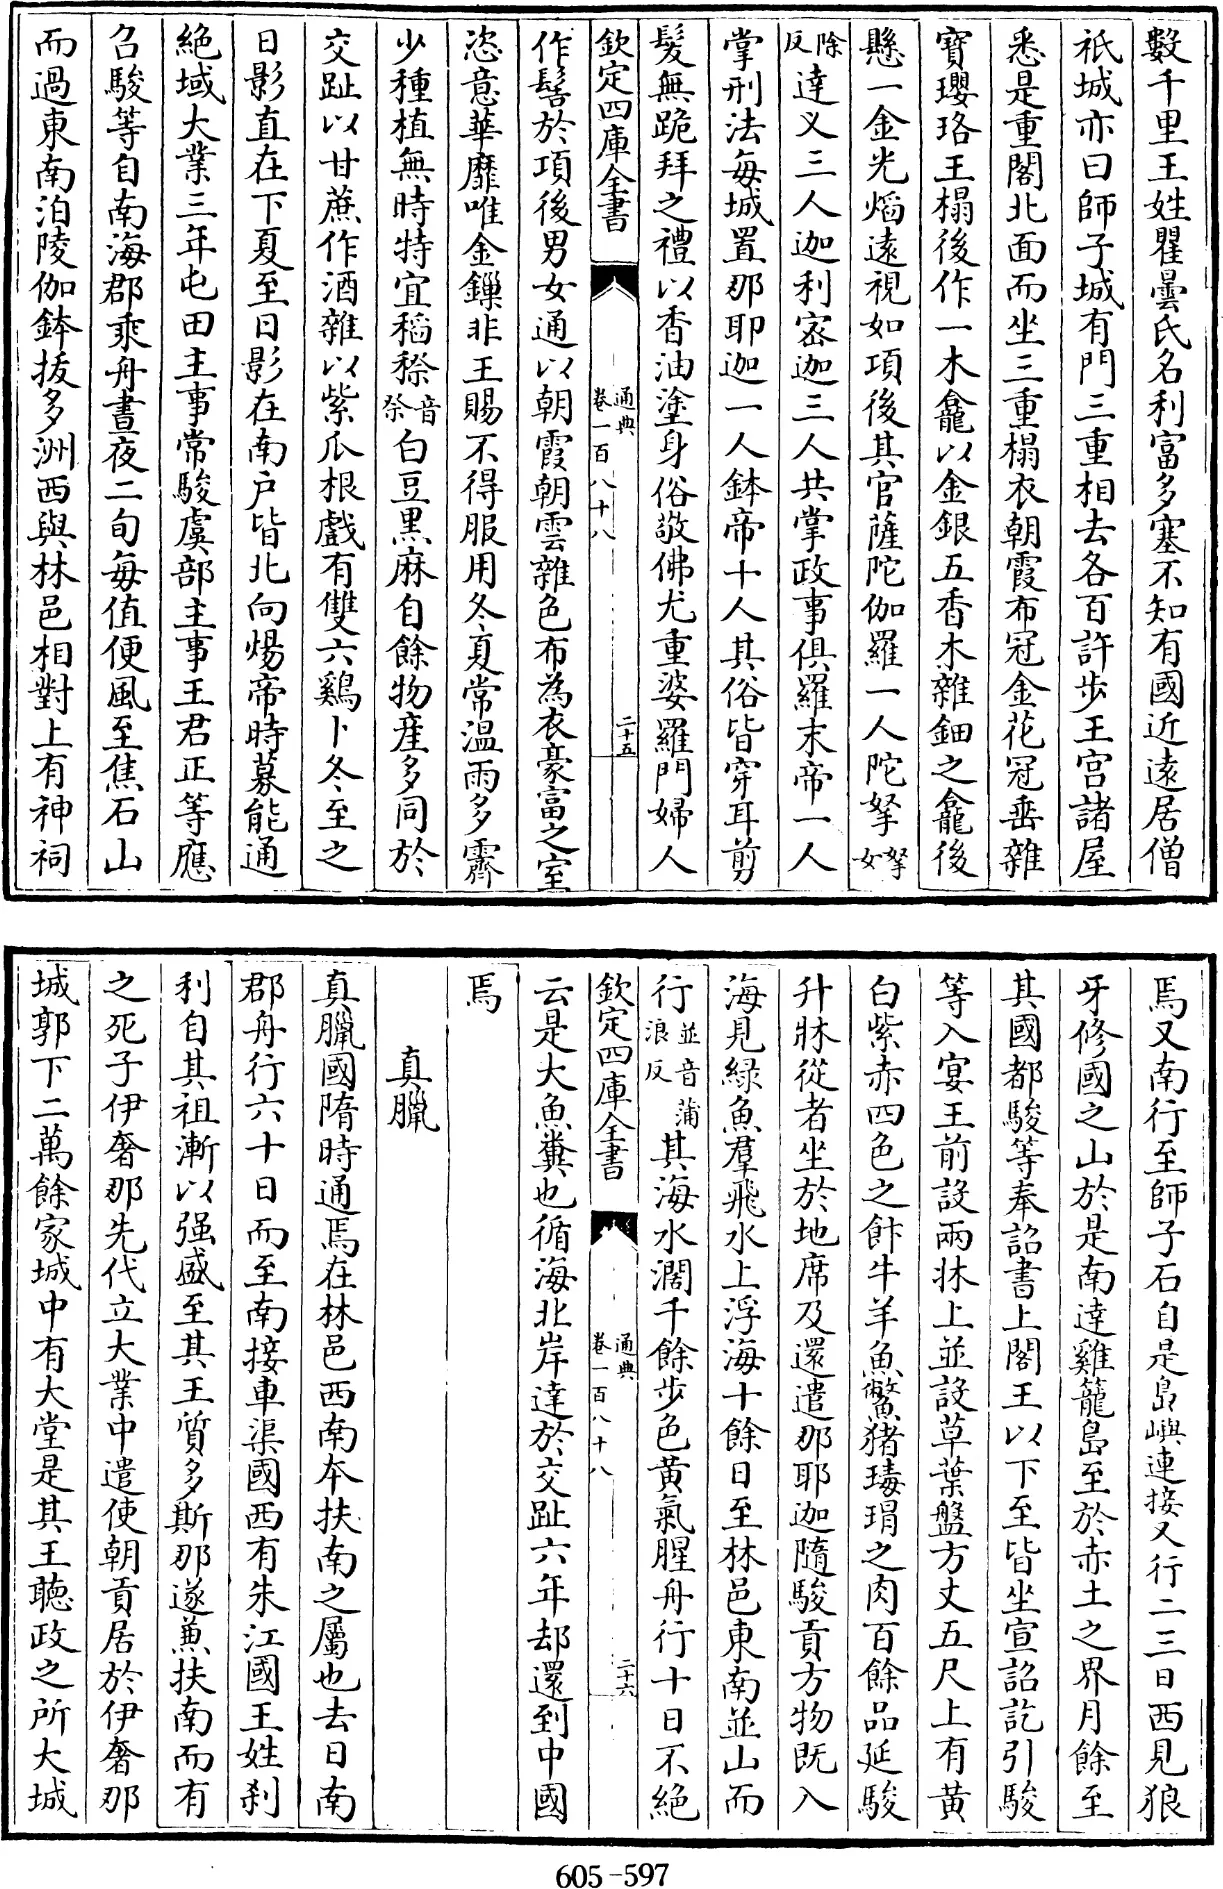 數千里王姓瞿曇氏名利富多塞不知有國近遠居僧
祇城亦曰師子城有門三重相去各百許步王宮諸屋
悉是重閣北面而坐三重榻衣朝霞布冠金花冠垂雜
寶瓔珞王榻後作一木龕以金銀五香木雜鈿之龕後
懸一金光熖遠視如項後其官薩陀伽羅一人陀拏拏女
除反達义三人迦利宻迦三人共掌政事俱羅末帝一人
掌刑法每城置那耶迦一人鉢帝十人其俗皆穿耳剪
髮無跪拜之禮以香油塗身俗敬佛尤重婆羅門婦人
欽定四庫全書
通典
卷一百八十八
二十五
作髻於項後男女通以朝霞朝雲雜色布為衣豪富之室
恣意華靡唯金鏁非王賜不得服用冬夏常温雨多霽
少種植無時特宜稻穄音祭白豆黑麻自餘物産多同於
交趾以甘蔗作酒雜以紫瓜根戲有雙六鷄卜冬至之
日影直在下夏至日影在南户皆北向煬帝時募能通
絶域大業三年屯田主事常駿虞部主事王君正等應
召駿等自南海郡乘舟晝夜二旬每值便風至焦石山
而過東南泊陵伽鉢拔多洲西與林邑相對上有神祠
焉又南行至師子石自是島嶼連接又行二三日西見狼
牙修國之山於是南達雞籠島至於赤土之界月餘至
其國都駿等奉詔書上閣王以下至皆坐宣詔訖引駿
等入宴王前設兩牀上並設草葉盤方丈五尺上有黃
白紫赤四色之餅牛羊魚鱉猪瑇瑁之肉百餘品延駿
升牀從者坐於地席及還遣那耶迦隨駿貢方物既入
海見綠魚羣飛水上浮海十餘日至林邑東南並山而
行並音蒲浪反其海水濶千餘步色黃氣腥舟行十日不絶
欽定四庫全書
通典
卷一百八十八
二十六
云是大魚糞也循海北岸達於交趾六年却還到中國
焉
真臘
真臘國隋時通焉在林邑西南本扶南之屬也去日南
郡舟行六十日而至南接車渠國西有朱江國王姓刹
利自其祖漸以强盛至其王質多斯那遂兼扶南而有
之死子伊奢那先代立大業中遣使朝貢居於伊奢那
城郭下二萬餘家城中有大堂是其王聽政之所大城
605-597